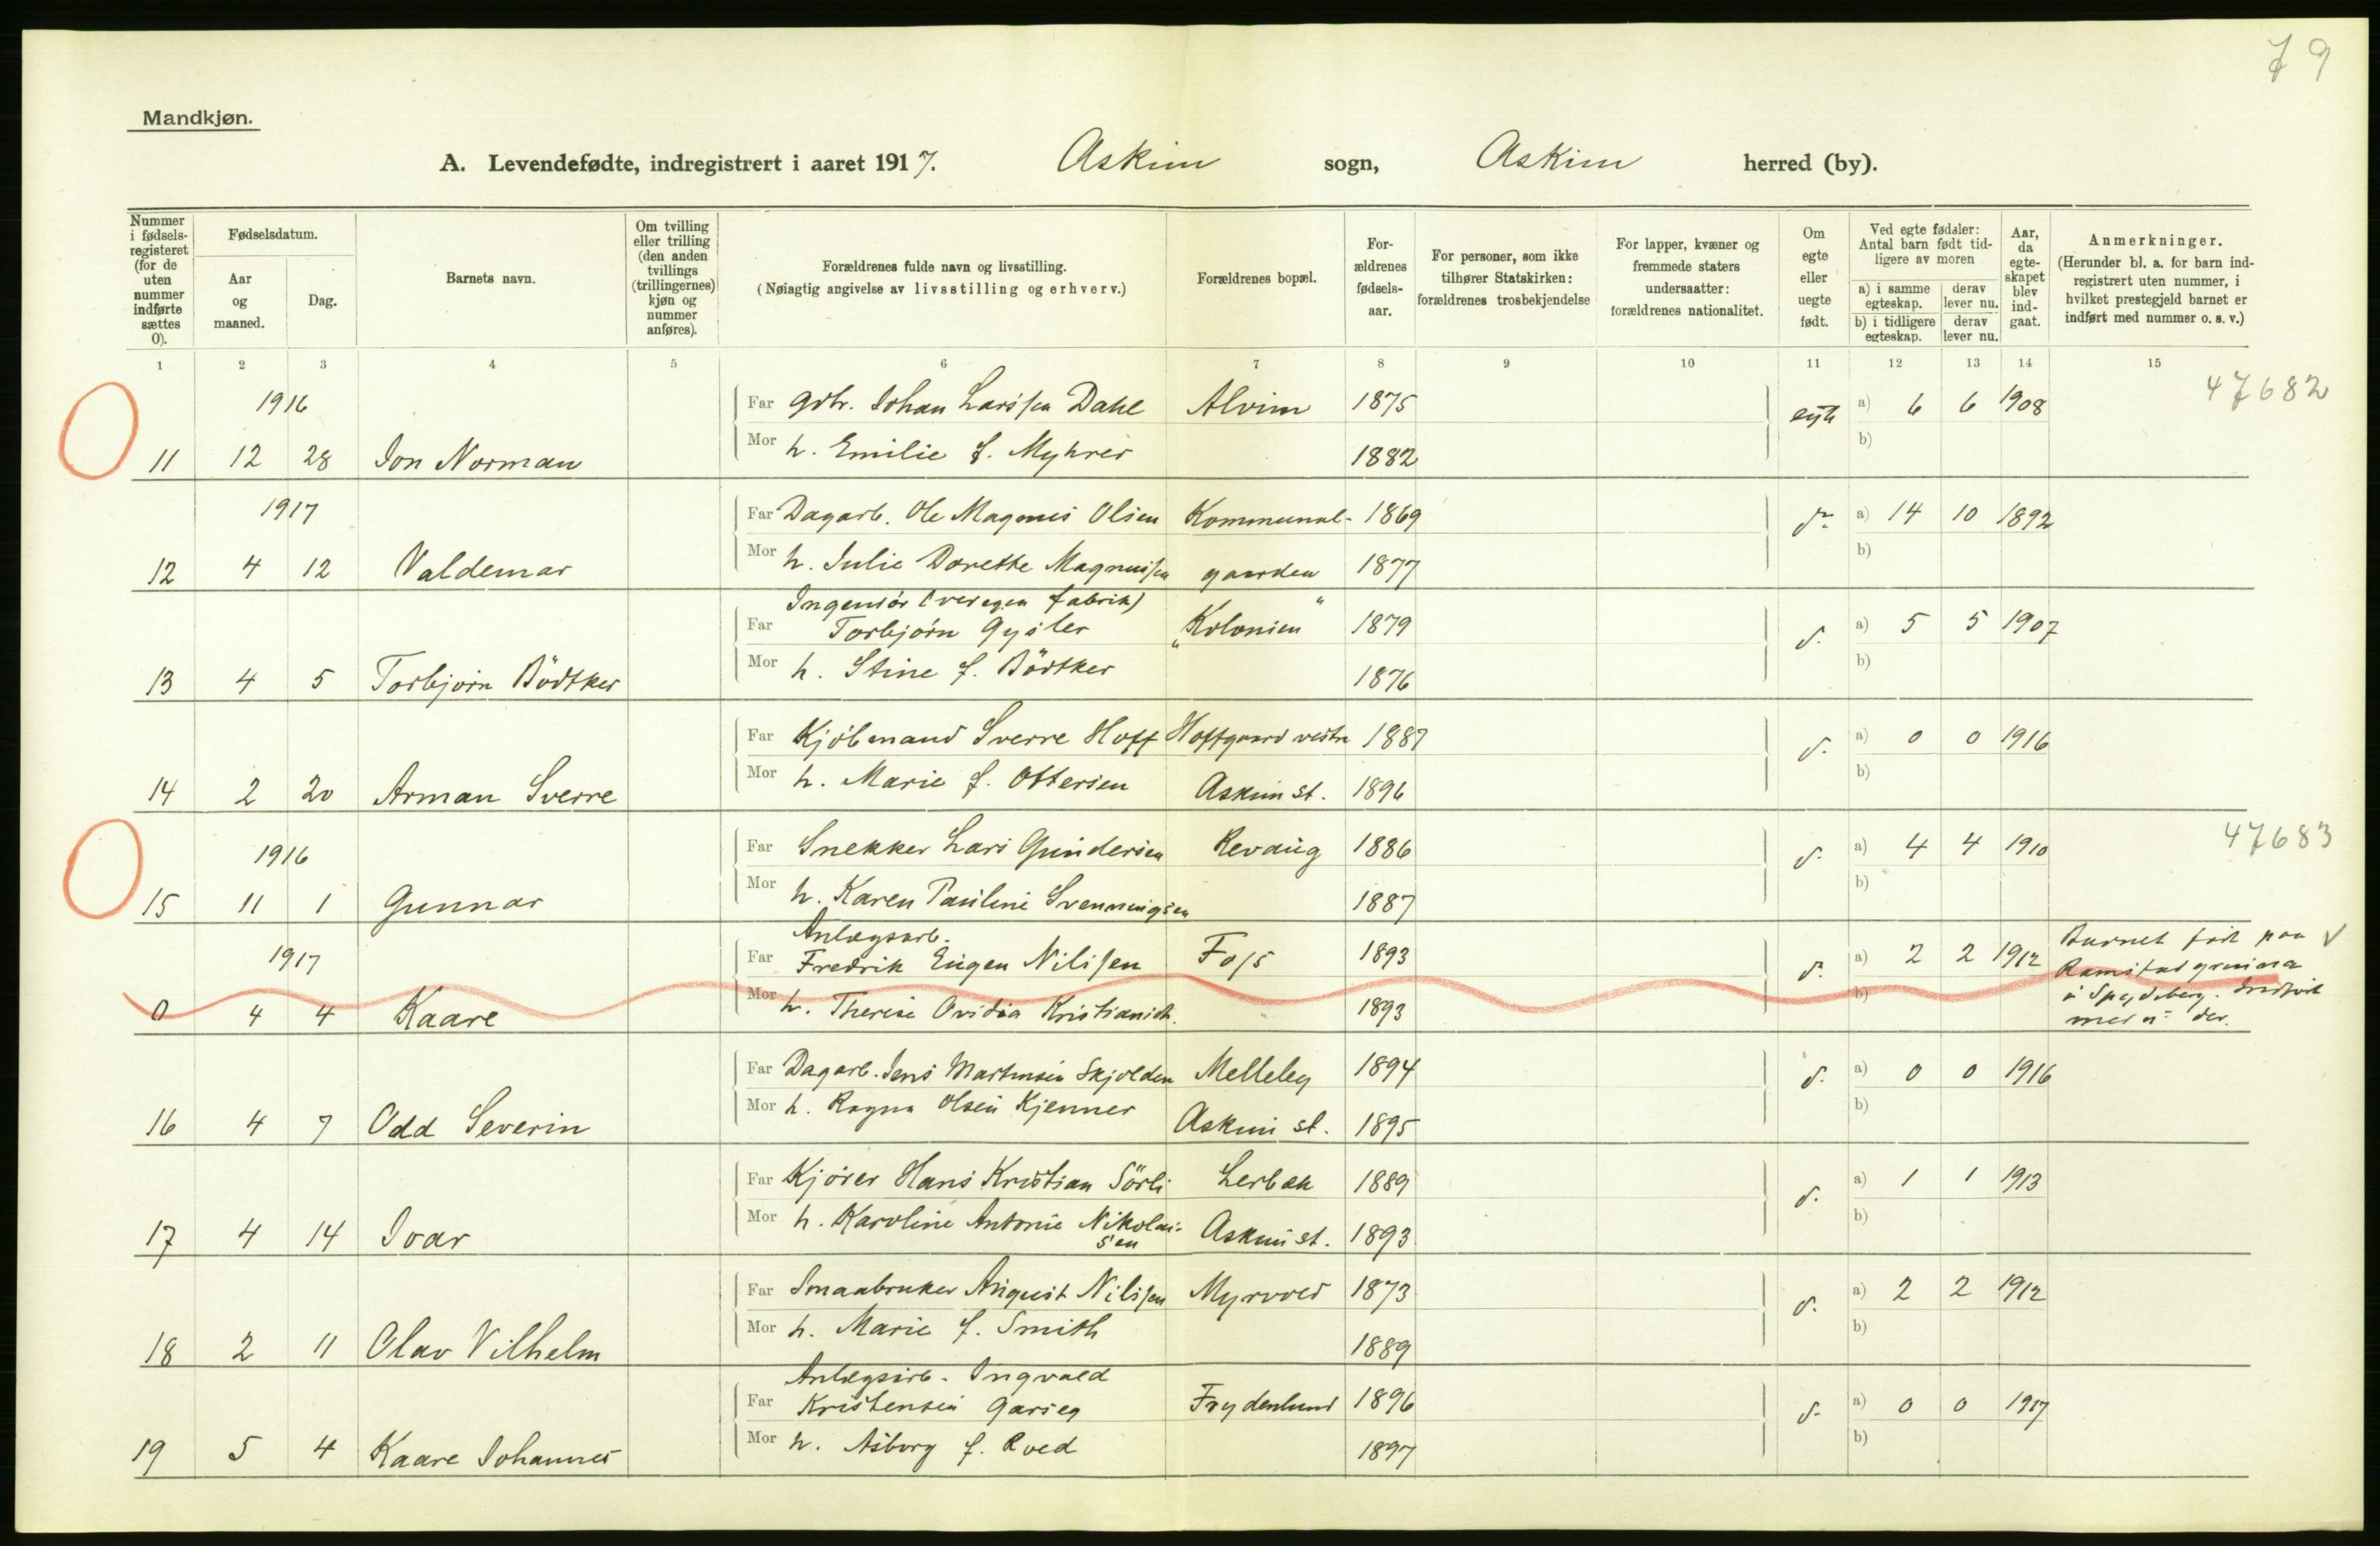 79
Mandkjøn.
A. Levendefødte, indregistrert i aaret 1917. Askim sogn, Askim herred (by).
Nummer i fødselsregisteret (for de uten nummer indførte sættes 0).
Fødselsdatum.
Aar og maaned.
Dag.
Barnets navn.
Om tvilling eller trilling (den anden tvillings (trillingernes) kjøn og nummer anføres).
Forældrenes fulde navn og livsstilling.
(Nøiagtig angivelse av livsstilling og erhverv.)
Forældrenes bopæl.
Forældrenes fødselsaar.
For personer, som ikke tilhører Statskirken: forældrenes trosbekjendelse
For lapper, kvæner og fremmede staters undersaatter: forældrenes nationalitet.
Om egte eller uegte født.
Ved egte fødsler: Antal barn født tidligere av moren
a) i samme egteskap. derav lever nu.
b) i tidligere egteskap. derav lever nu.
Aar, da egteskapet blev indgaat.
Anmerkninger.
(Herunder bl. a. for barn indregistrert uten nummer, i hvilket prestegjeld barnet er indført med nummer o. s. v.)
1 2 3 4 5 6 7 8 9 10 11 12 13 14 15
1916 Far Gbr. Johan Larssen Dahl Alvim 1875 egte a) 6 6 1908 47682
11 12 28 Jon Norman Mor h. Emilie f. Myhrer 1882 b)
1917 Far Dagarb. Ole Magnus Olsen Kommunal- 1869 d. a) 14 10 1892
12 4 12 Valdemar Mor h. Julie Dorette Magnussen gaarden 1877 b)
Ingeniør
Far Torbjørn Gysler "Kolonien" 1879 d. a) 5 5 1907
13 4 5 Torbjørn Bödtker Mor h. Stine f. Bödtker 1876 b)
Far Kjøbmand Sverre Hoff Hoffgaard vestre 1887 d. a) 0 0 1916
14 2 20 Arman Sverre Mor h. Marie f. Ottersen Askim st. 1896 b)
1916 Far Snekker Lars Gundersen Revaug 1886 d. a) 4 4 1910 47683
15 11 1 Gunnar Mor h. Karen Pauline Svenningsen 1887 b)
Anlægsarb.
1917 Far Fredrik Eugen Nilssen Foss 1893 d. a) 2 2 1912 Barnet født paa
0 4 4 Kaare Mor h. Therese Ovidia 1893 b) i Spydeberg. Indført
med nr der.
Far Dagarb. Jens Martinsen Skjolden Melleby 1894 d. a) 0 0 1916
16 4 7 Odd Severin Mor h. Ragna Olsen Kjenner Askim st. 1895 b)
Far Kjører Hans Kristian Sörli Lerbæk 1889 d. a) 1 1 1913
17 4 14 Ivar Mor h. Karoline Antonie Nikolaisen Askim st. 1893 b)
Far Smaabruker August Nilssen Myrvold 1873 d. a) 2 2 1912
18 2 11 Olav Vilhelm Mor h. Marie f. Smith 1889 b)
Anlægsarb. Ingvald
Far Kristensen Garseg Frydenlund 1896 d. a) 0 0 1917
19 5 4 Kaare Johannes Mor h. Asborg f. Roed 1897 b)